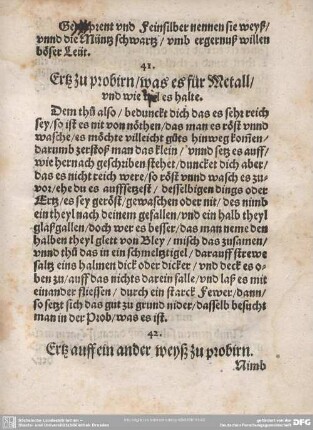 Geprent vnd Feinsilber nennen sie weyß/
vnnd die Müntz schwartz/ vmb ergernuß willen
böser Leüt.
41.
Ertz zu probirn/ was es für Metall/
vnd wie vil es halte.
Dem thů also/ beduncket dich das es sehr reich
sey/ so ist es nit von nöthen/ das man es röst vnnd
wasche/ es möchte villeicht gůts hinweg komen/
darumb zerstoß man das klein/ vnnd setz es auff/
wie hernach geschriben stehet/ duncket dich aber/
das es nicht reich were/ so röst vnnd wasch es zu-
vor/ ehe du es auffsetzest/ desselbigen dings oder
Ertz/ es sey geröst/ gewaschen oder nit/ des nimb
ein theyl nach deinem gefallen/ vnd ein halb theyl
glaßgallen/ doch wer es besser/ das man neme den
halben theyl glett von Bley/ misch das zusamen/
vnnd thů das in ein schmeltztigel/ darauff strewe
saltz eins halmen dick oder dicker/ vnd deck es o-
ben zu/ auff das nichts darein falle/ vnd laß es mit
einander fliessen/ durch ein starck Fewer/ dann/
so setzt sich das gut zu grund nider/ dasselb besucht
man in der Prob/ was es ist.
42.
Ertz auff ein ander weyß zu probirn.
Nimb